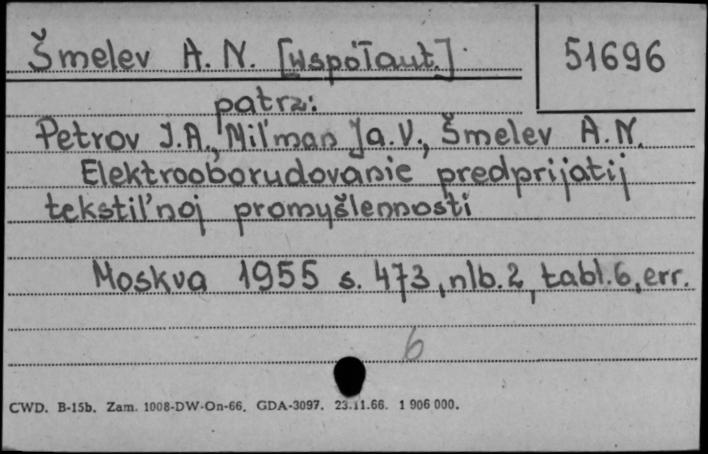 Šmelev A. N. [współaut.]
51696
patrz:
Petrov I.A., Mil'man Ja.V., Šmelev A.N.
Elektrooborudovanie predprijatij
tekstil'noj promyšlennosti
Moskva 1955 s. 473, nlb. 2, tabl. 6, err.
6
CWD. B-15b. Zam. 1008-DW-On-66. GDA-3097. 23.11.66. 1 906 000.